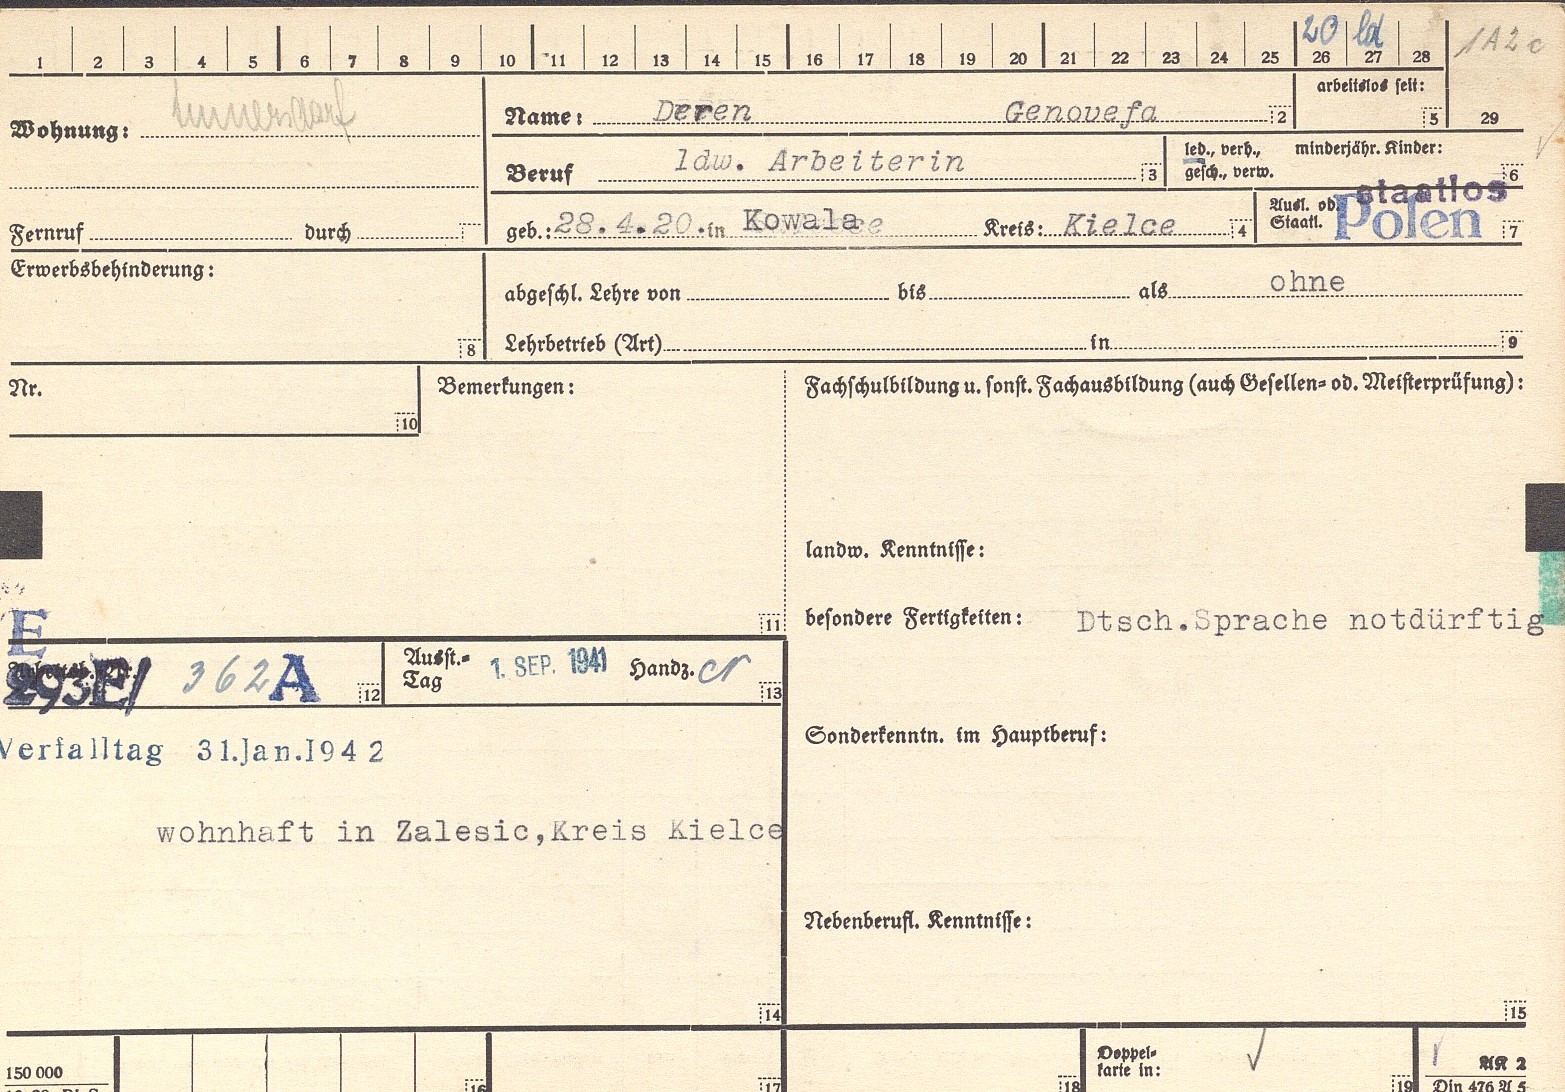 1 2 3 4 5 6 7 8 9 10 11 12 13 14 15 16 17 18 19 20 21 22 23 24 25 26 27 28
20 ld 1A2c
Wohnung:
Name: Deren Genovefa 2
arbeitslos seit: 5
29
Beruf ldw. Arbeiterin 3
led., verh., minderjähr. Kinder:
gesch., verw. 6
Fernruf durch
geb.: 28.4.20. in Kowala Kreis: Kielce 4
Ausl. od. staatlos
Staatl. Polen 7
Erwerbsbehinderung:
8
abgeschl. Lehre von bis als ohne
Lehrbetrieb (Art) in 9
Nr.
10
Bemerkungen:
11
Fachschulbildung u. sonst. Fachausbildung (auch Gesellen- od. Meisterprüfung):
landw. Kenntnisse:
besondere Fertigkeiten: Dtsch.Sprache notdürftig
E
293E/ 362 A 12
Ausst.-
Tag 1. SEP. 1941 Handz. 13
Verfalltag 31.Jan.1942
Sonderkenntn. im Hauptberuf:
wohnhaft in Zalesic,Kreis Kielce
Nebenberufl. Kenntnisse:
14
15
150 000
16
17
18
Doppel-
karte in: 19
AK 2
Din 476 A 5